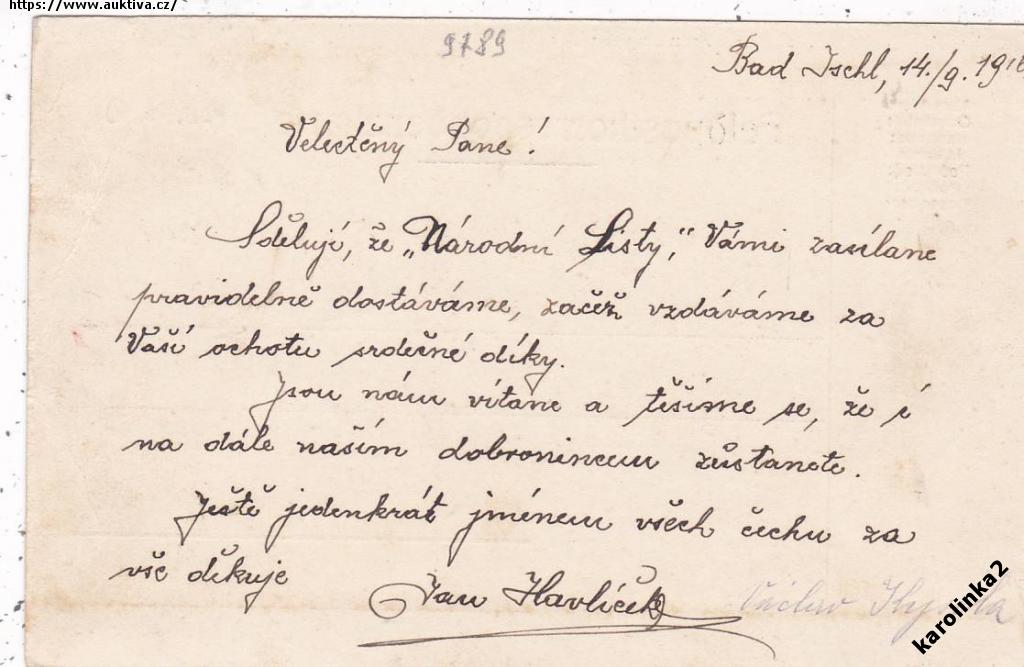 https://www.auktiva.cz/
9789
Bad Ischl, 14./9. 191
Velectěný Pane!
Sděluji, že „Národní Listy,“ Vámi zasílane
pravidelně dostáváme, začež vzdáváme za
Vaší ochotu srdečné díky.
Jsou nám vítane a těšíme se, že i
na dále naším dobronincem zůstanete.
Ještě jedenkrát jménem všech čechu za
vše děkuje
Jan Havlíček
Václav
karolinka2